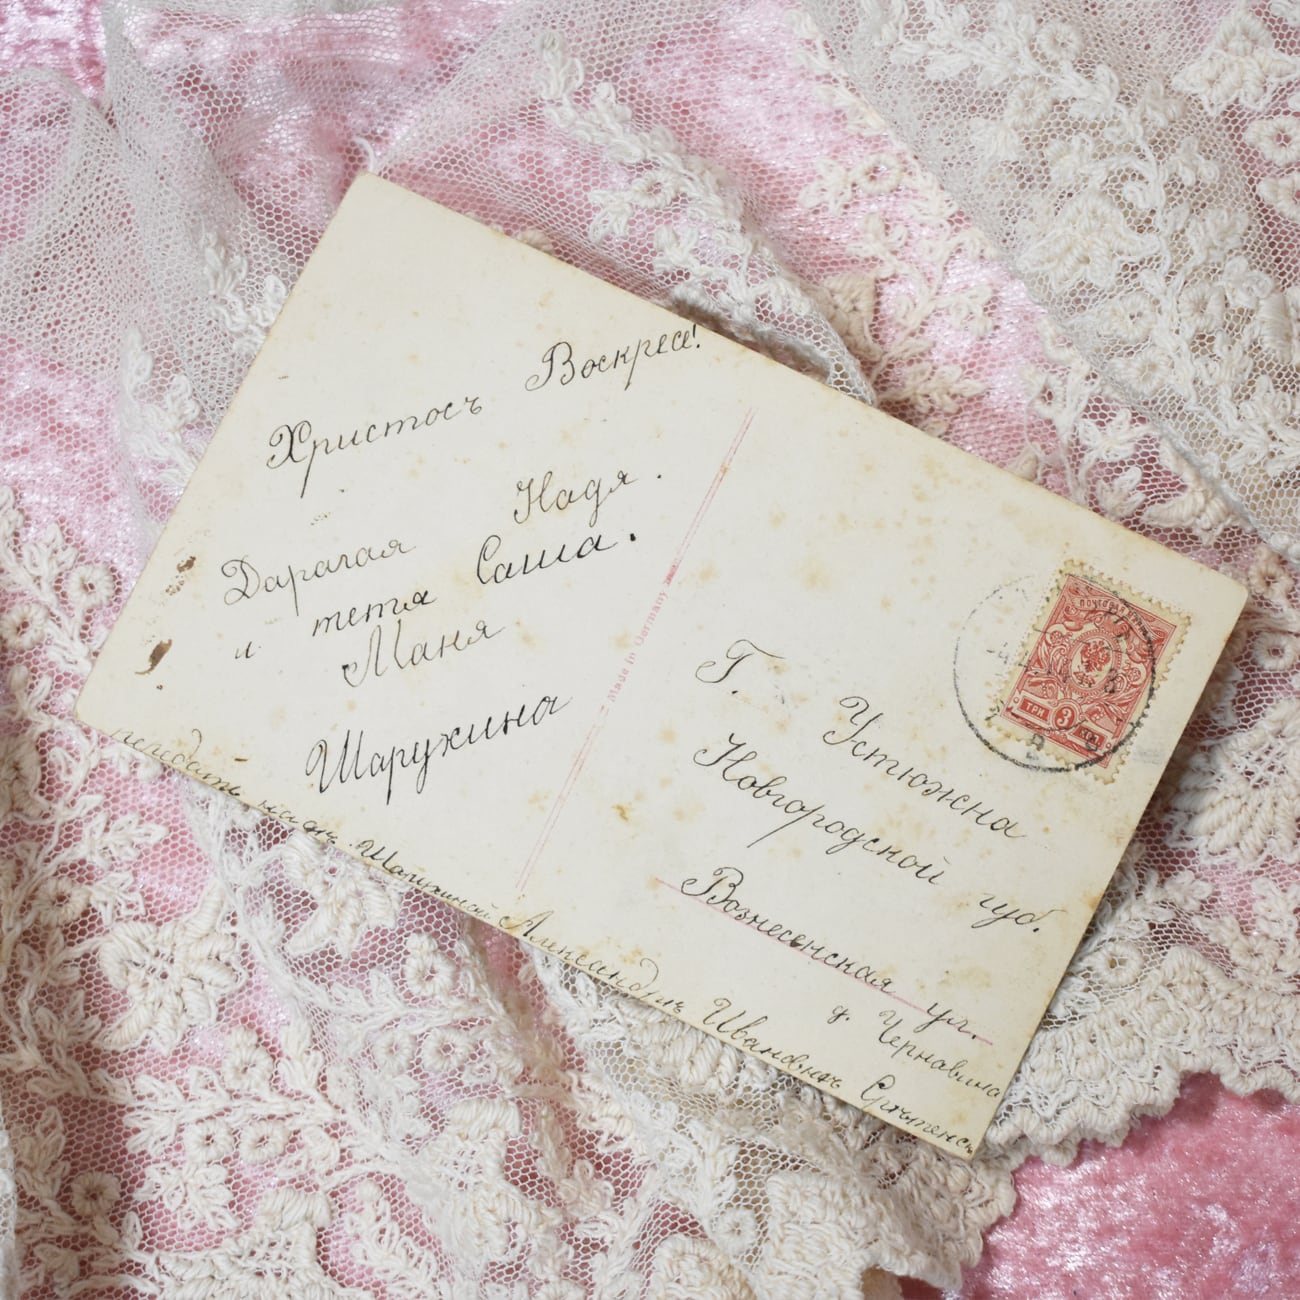 Христосъ Воскресе!
Дарагая Надя.
и тетя Саша.
Маня
Шарухина
Made in Germany
ПОЧТОВАЯ
ТРИ 3 КОП.
Г. Устюжна
Новгородской губ.
Вознесенская ул.
д. Чернавина
Александръ Ивановнъ